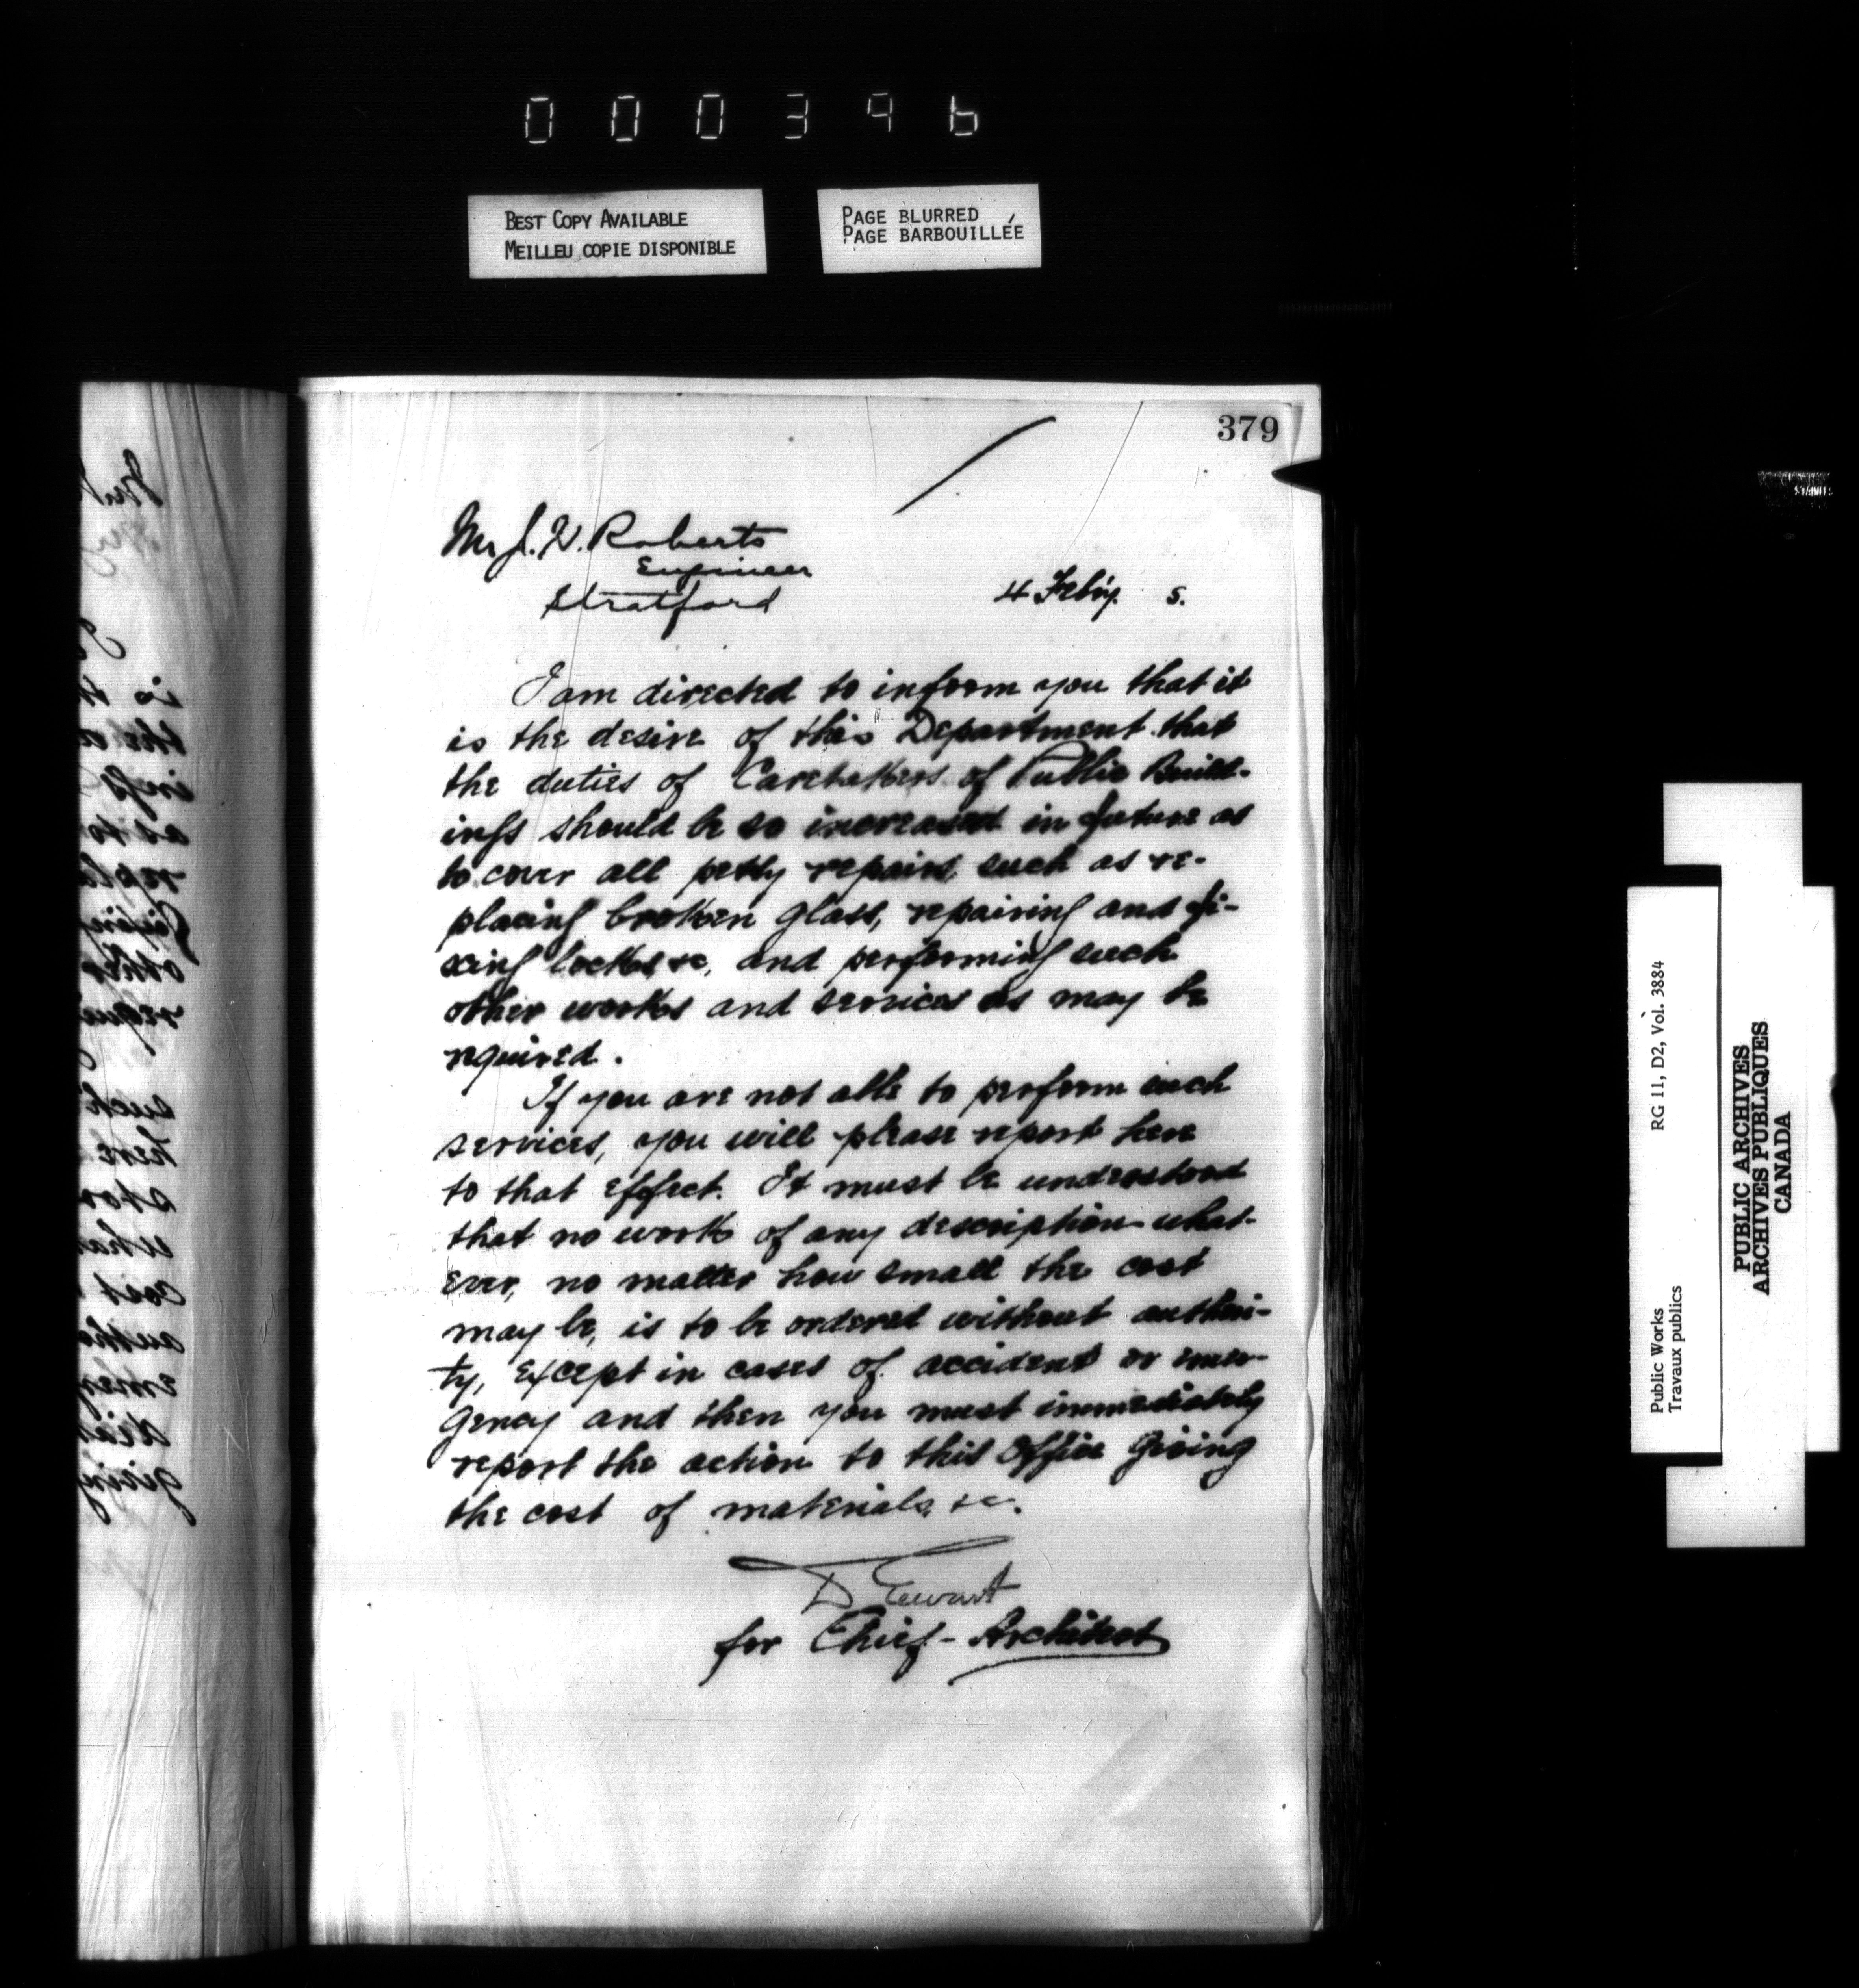 000396
BEST COPY AVAILABLE
MEILLEU COPIE DISPONIBLE
PAGE BLURRED
PAGE BARBOUILLÉE
379
Mr J. H. Roberts
Engineer
Stratford
4 Feb'y. 5.
I am directed to inform you that it
is the desire of this Department that
the duties of Caretakers of Public Build-
ings should be so increased in future as
to cover all petty repairs, such as re-
placing broken glass, repairing and fi-
xing locks &c, and performing such
other works and services as may be
required.
If you are not able to perform such
services, you will please report here
to that effect. It must be understood
that no work of any description what-
ever, no matter how small the cost
may be, is to be ordered without authori-
ty, except in cases of accident or emer-
gency and then you must immediately
report the action to this Office giving
the cost of materials, &c.
D Ewart
for Chief-Architect
Public Works RG 11, D2, Vol. 3884
Travaux publics
PUBLIC ARCHIVES
ARCHIVES PUBLIQUES
CANADA